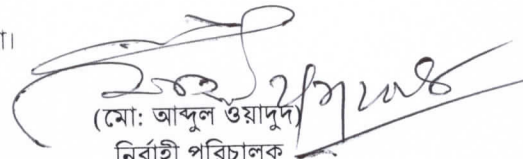 া।
(মো: আব্দুল ওয়াদুদ)
নির্বাহী পরিচালক